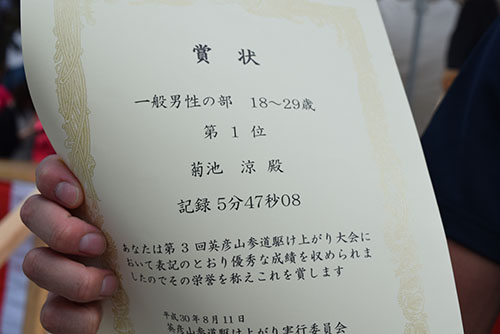 賞状
一般男性の部 18～29歳
第1位
菊池 涼 殿
記録 5分47秒08
あなたは第3回英彦山参道駆け上がり大会に
おいて表記のとおり優秀な成績を収められま
したのでその栄誉を称えこれを賞します
平成30年8月11日
英彦山参道駆け上がり実行委員会